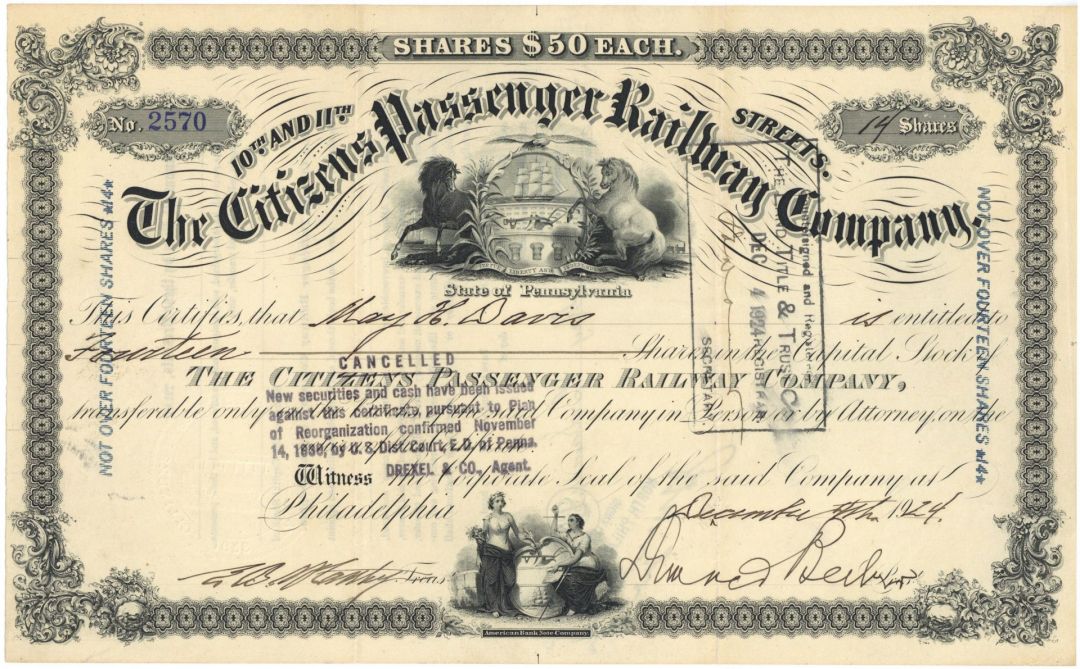 SHARES $50 EACH.
No. 2570
10TH AND 11TH STREETS.
14 Shares
The Citizens Passenger Railway Company.
LIBERTY AND
State of Pennsylvania
This Certifies, that May H. Davis is entitled to
Fourteen Shares in the Capital Stock of
THE CITIZENS PASSENGER RAILWAY COMPANY,
transferable only said Company in Person or by Attorney, on the
Witness the Corporate Seal of the said Company at
Philadelphia December 4th 1924.
Treas
American Bank Note Company.
CANCELLED
New securities and cash have been issued
against this certificate, pursuant to Plan
of Reorganization confirmed November
14, 1939, by U.S. Dist. Court, E.D. of Penna.
DREXEL & CO., Agent.
NOT OVER FOURTEEN SHARES *14*
NOT OVER FOURTEEN SHARES *14*
Countersigned and Registered
THE LAND TITLE & TRUST CO
DEC 4 1924 REGISTRAR
SECRETARY